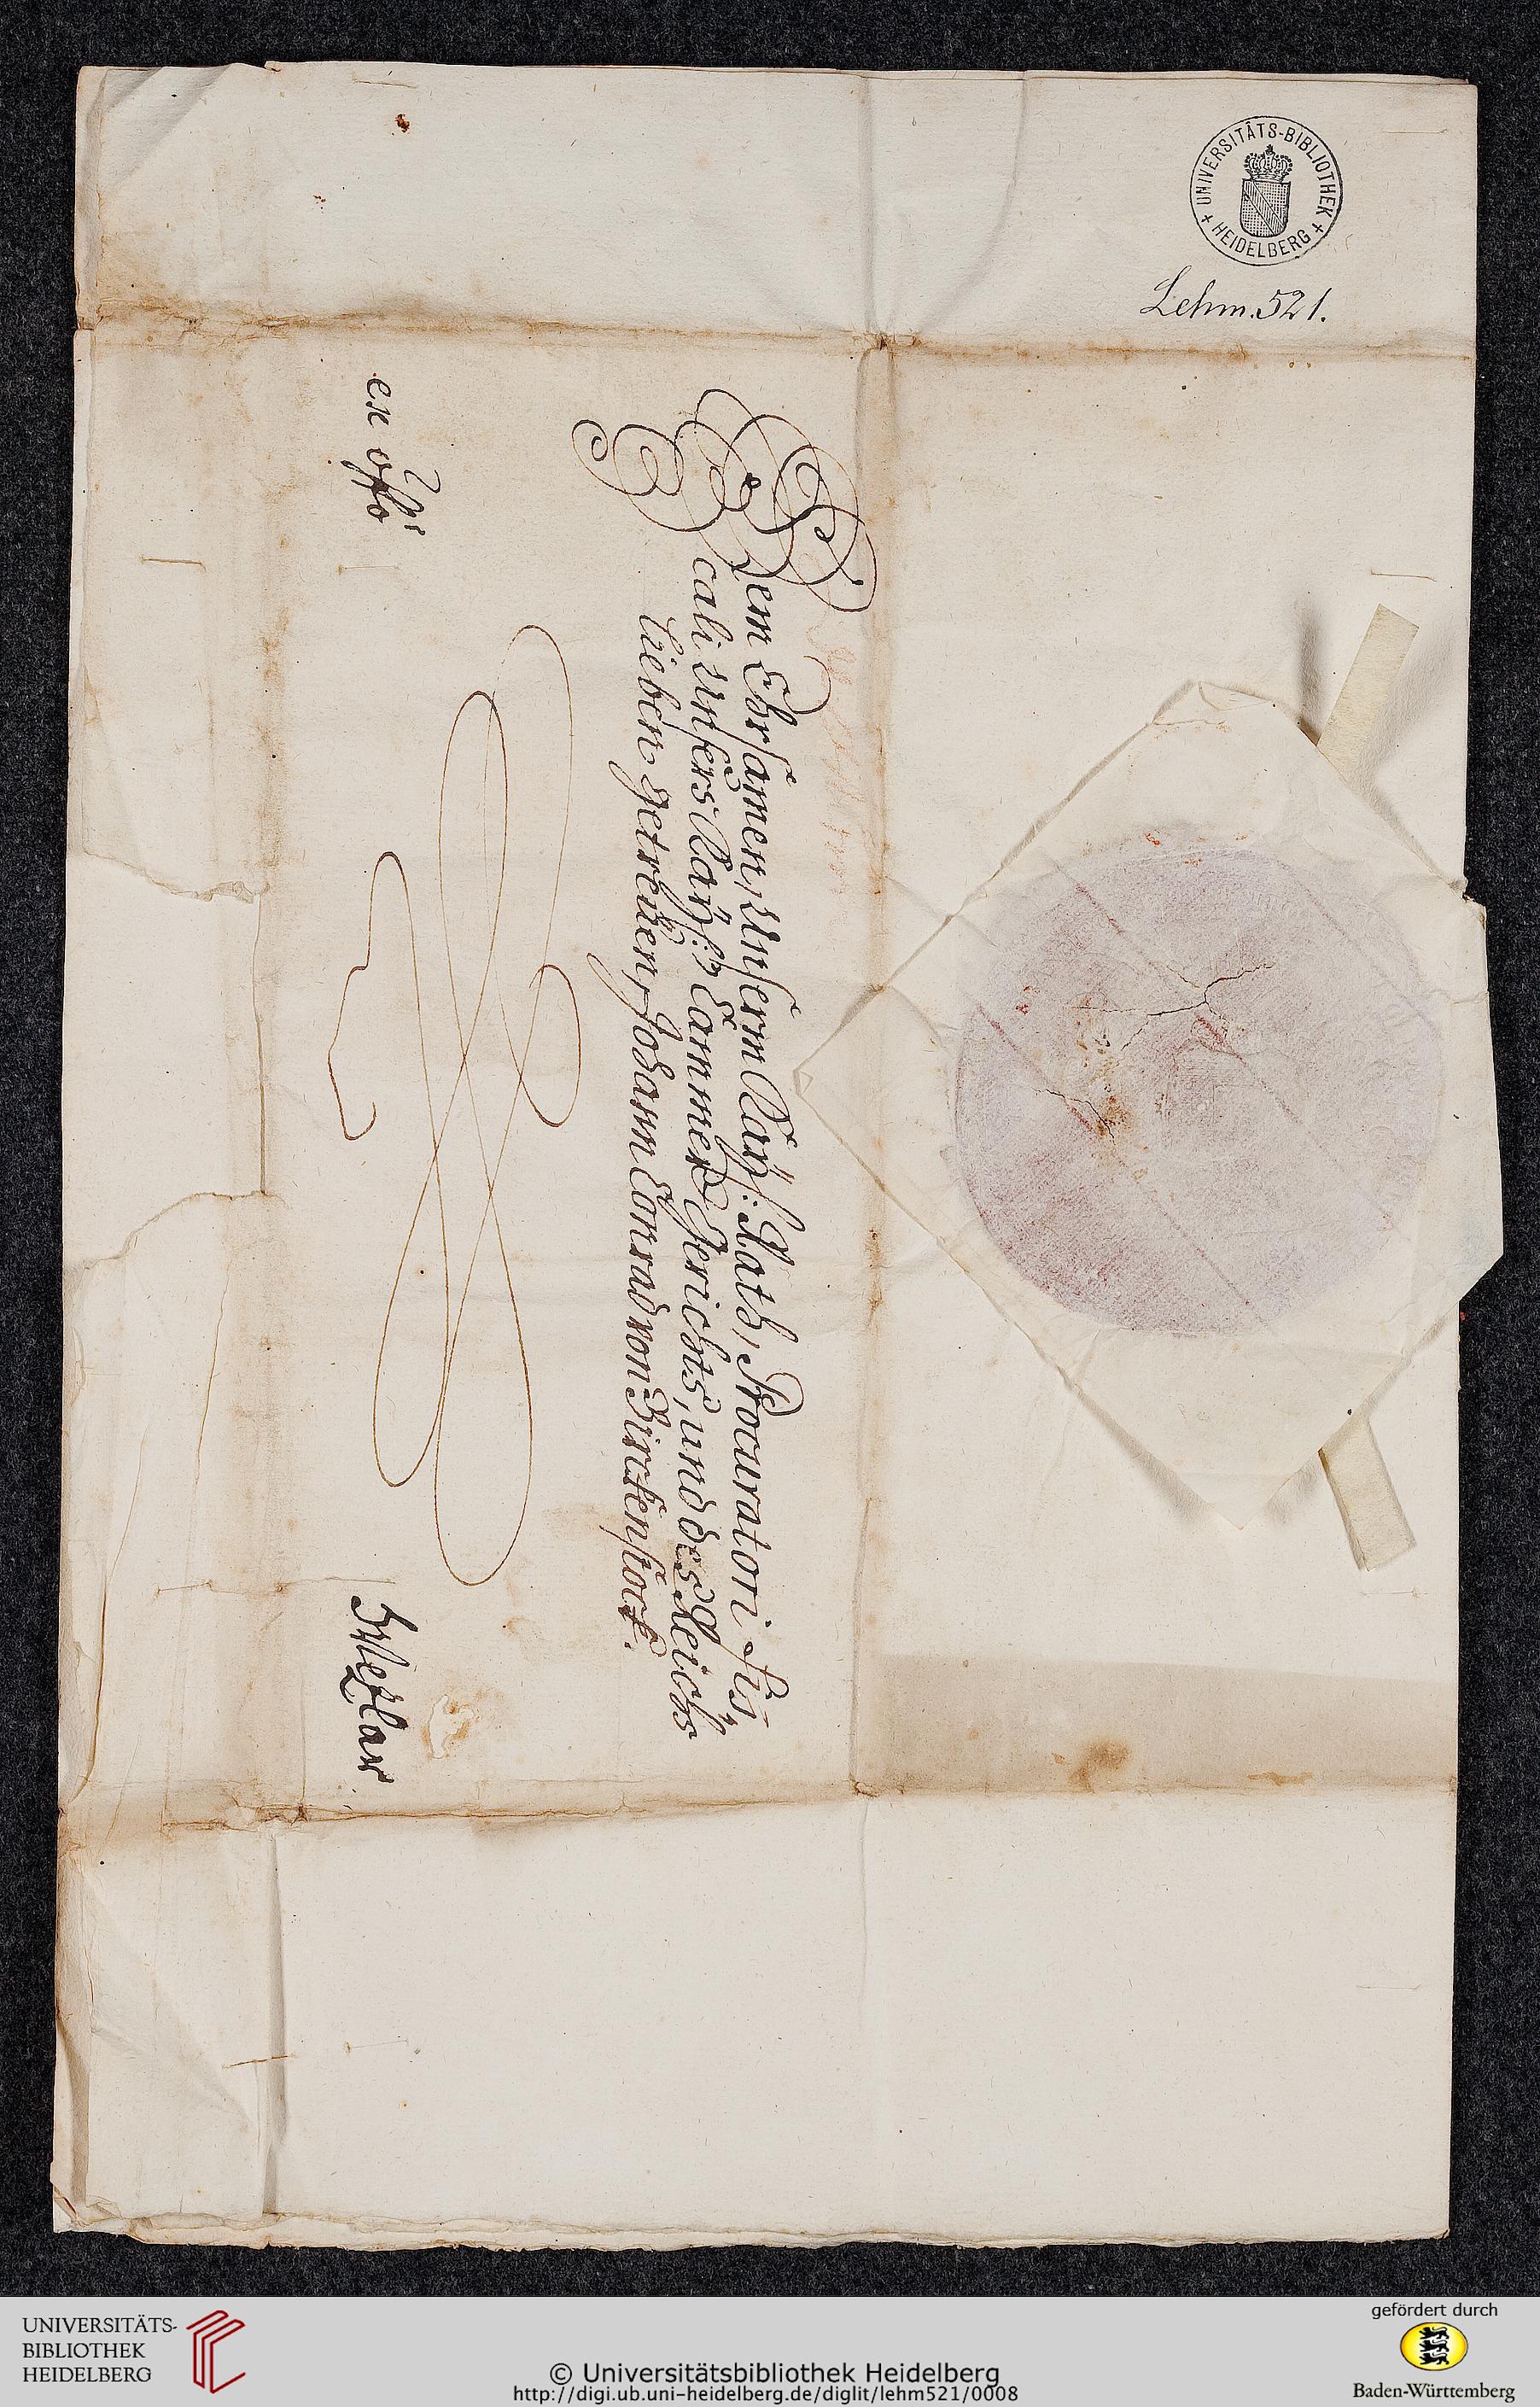 UNIVERSITÄTS-BIBLIOTHEK
+ HEIDELBERG +
Lehm. 521.
Dem Ehrsamen, Unserm Kaÿs: Rath, Procuratori fis„
cali Unsers Kaÿs:n Cammer Gerichts, und des Reichs
Lieben getreüen, Johann Conrad von Birckenstock.
ex offo
Wezlar
UNIVERSITÄTS-
BIBLIOTHEK
HEIDELBERG
© Universitätsbibliothek Heidelberg
http://digi.ub.uni-heidelberg.de/diglit/lehm521/0008
gefördert durch
Baden-Württemberg